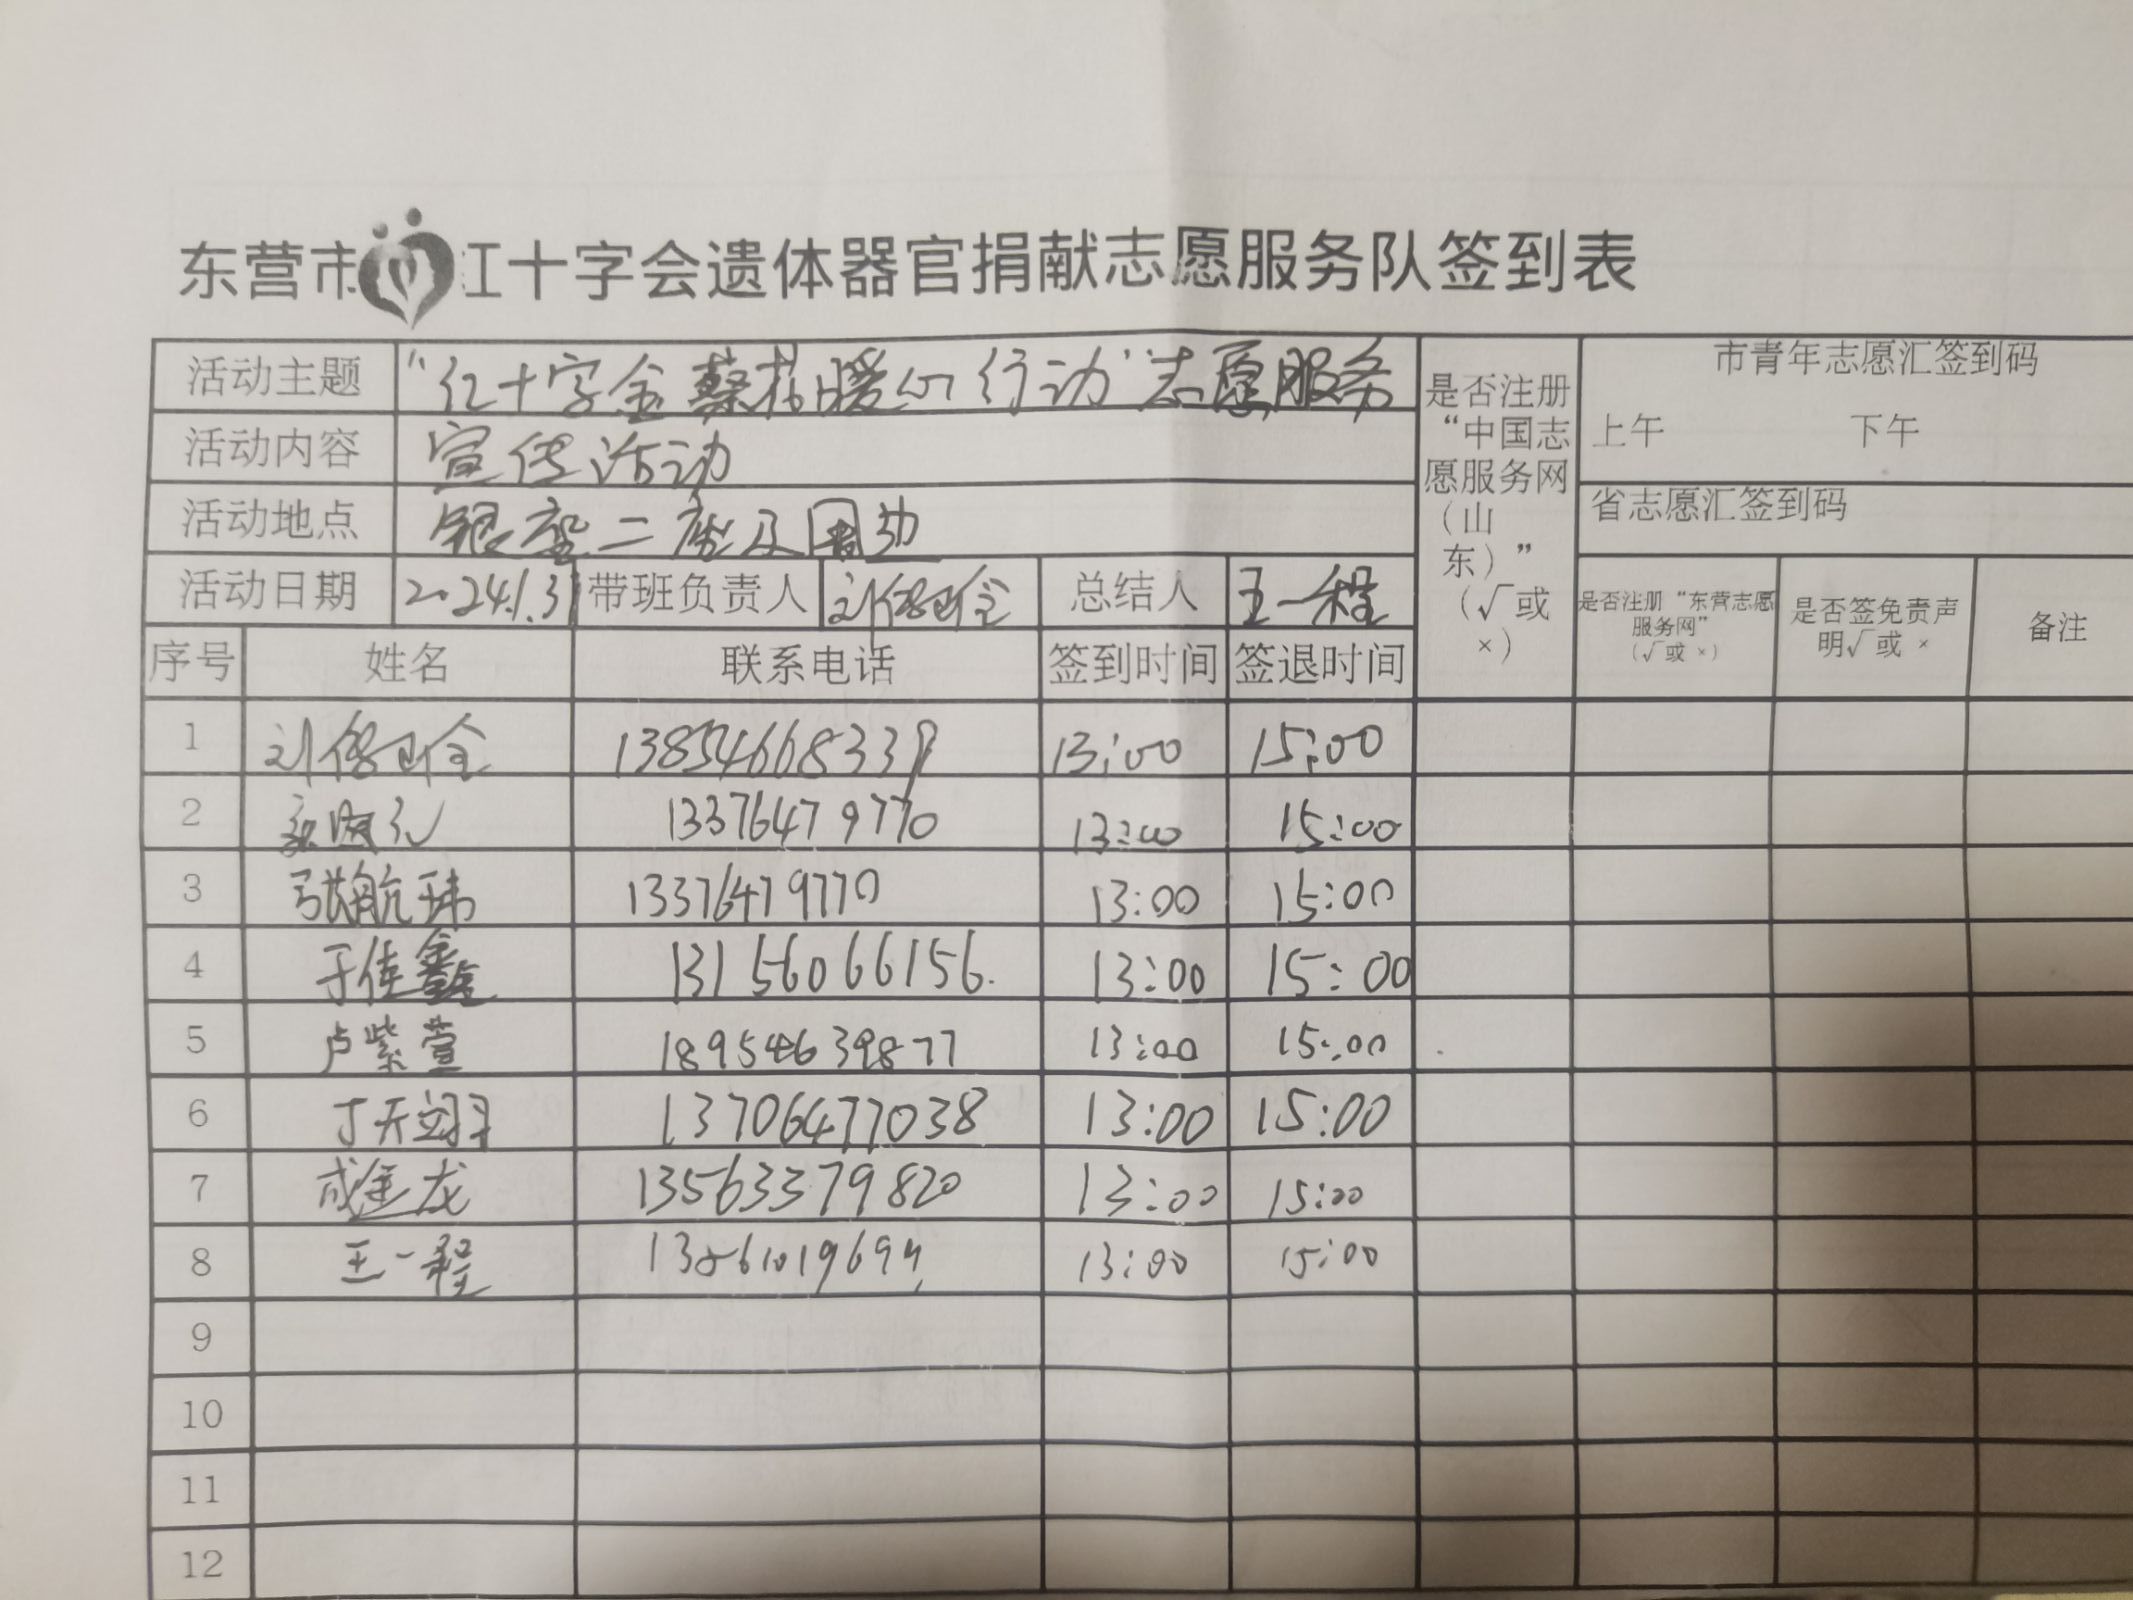 东营市红十字会遗体器官捐献志愿服务队签到表
活动主题 "红十字金葵花暖心行动"志愿服务
是否注册“中国志愿服务网（山东）”（√或×）
市青年志愿汇签到码
上午 下午
活动内容 宣传活动
省志愿汇签到码
活动地点 银座二店及周边
活动日期 2024.1.31 带班负责人 总结人 王一程
是否注册“东营志愿服务网”（√或×） 是否签免责声明√或× 备注
序号 姓名 联系电话 签到时间 签退时间
1 13854668339 13:00 15:00
2 13376479770 13:00 15:00
3 张航玮 13376479770 13:00 15:00
4 于佳鑫 13156066156. 13:00 15:00
5 卢紫萱 18954639877 13:00 15:00
6 丁天翊 13706477038 13:00 15:00
7 成金龙 13563379820 13:00 15:00
8 王一程 13:00 15:00
9
10
11
12